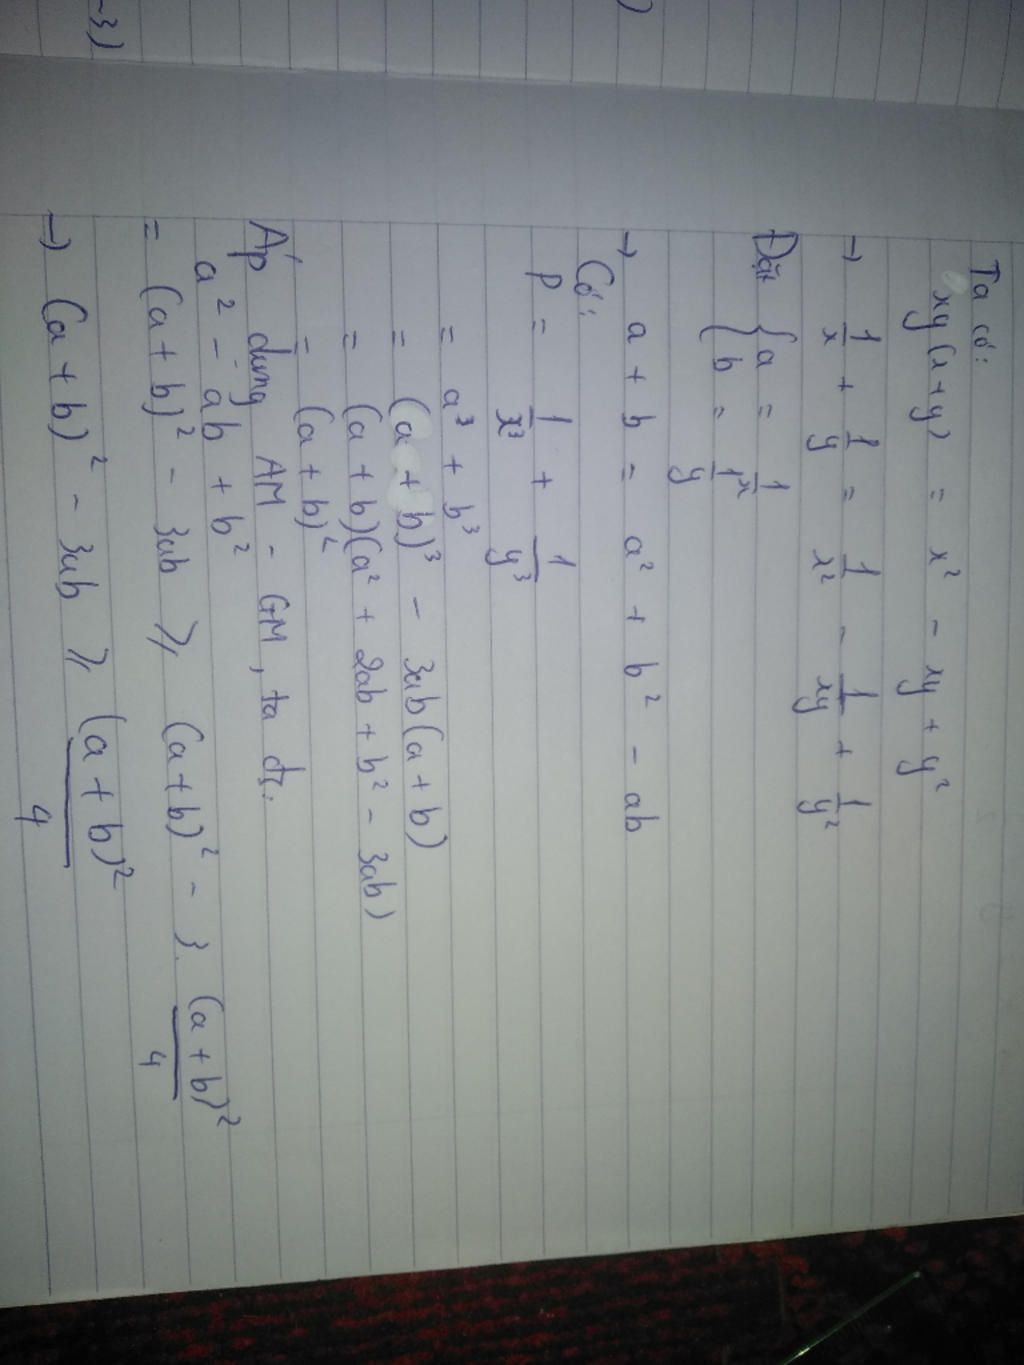 -3)
)
Ta có:
xy(x+y) = x² - xy + y²
→ 1/x + 1/y = 1/x² - 1/xy + 1/y²
Đặt { a = 1/x
{ b = 1/y
→ a + b = a² + b² - ab
Có:
P = 1/x³ + 1/y³
= a³ + b³
= (a + b)³ - 3ab(a + b)
= (a + b)(a² + 2ab + b² - 3ab)
= (a + b)²
Áp dụng AM - GM, ta đc.
a² - ab + b²
= (a + b)² - 3ab ≥ (a+b)² - 3. (a + b)²/4
→ (a + b)² - 3ab ≥ (a + b)²/4